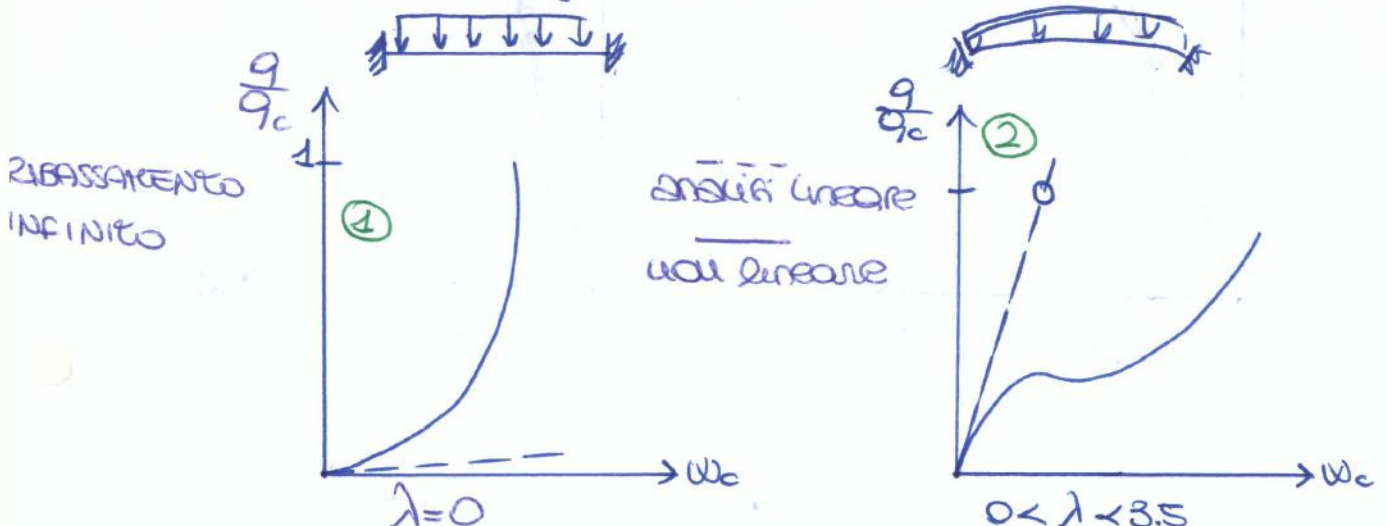 q/qc
1
RIBASSAMENTO
INFINITO
①
λ=0
wc
analisi lineare
non lineare
q/qc
②
wc
0 < λ < 3.5